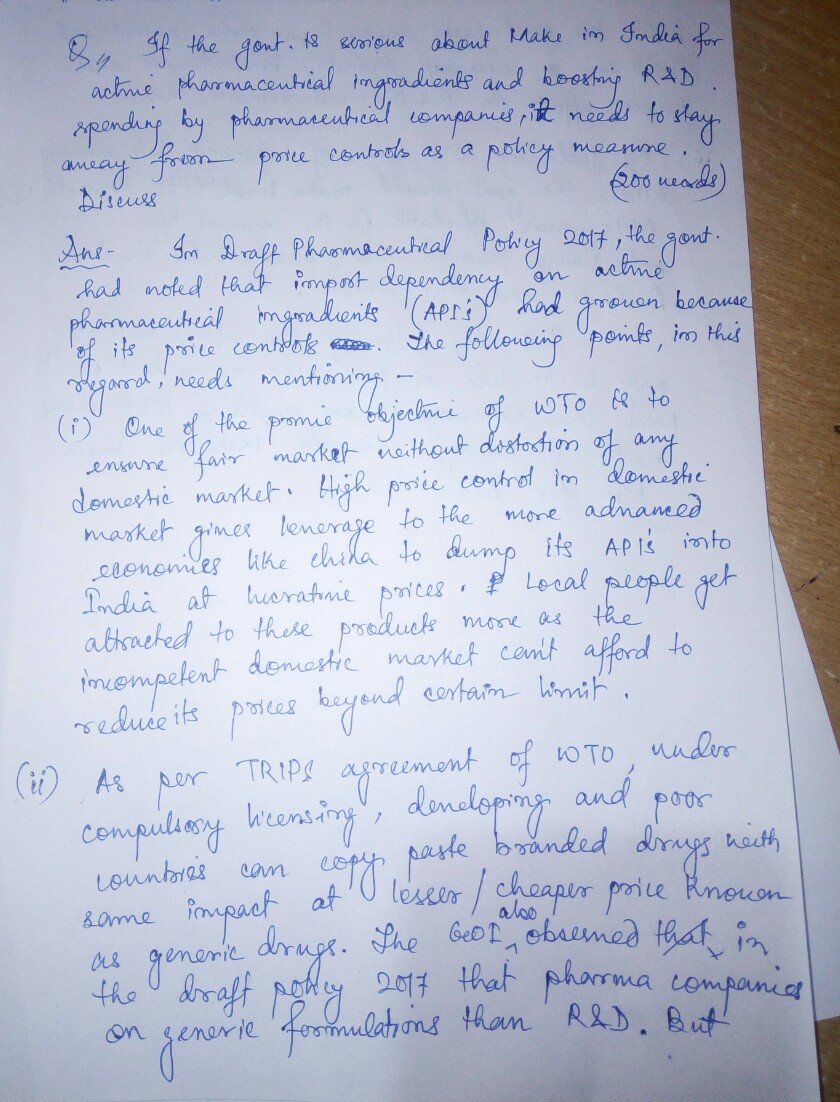 Q. If the govt. is serious about Make in India for
active pharmaceutical ingradients and boosting R&D
spending by pharmaceutical companies, it needs to stay
away from price controls as a policy measure.
(200 words)
Discuss
Ans- In Draft Pharmaceutical Policy 2017, the govt.
had noted that import dependency on active
pharmaceutical ingradients (API's) had grown because
of its price controls . The following points, in this
regard, needs mentioning -
(i) One of the prime objective of WTO is to
ensure fair market without distortion of any
domestic market. High price control in domestic
market gives leverage to the more advanced
economies like china to dump its API's into
India at lucrative prices. Local people get
attracted to these products more as the
incompetent domestic market can't afford to
reduce its prices beyond certain limit.
(ii) As per TRIPS agreement of WTO, under
compulsory licensing, developing and poor
countries can copy paste branded drugs with
same impact at lesser/cheaper price known
as generic drugs. The GOI also observed that in
the draft policy 2017 that pharma companies
on generic formulations than R&D. But